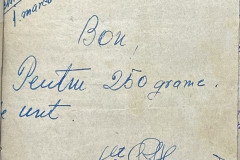 1 marti
Bon,
Pentru 250 grame.
unt.